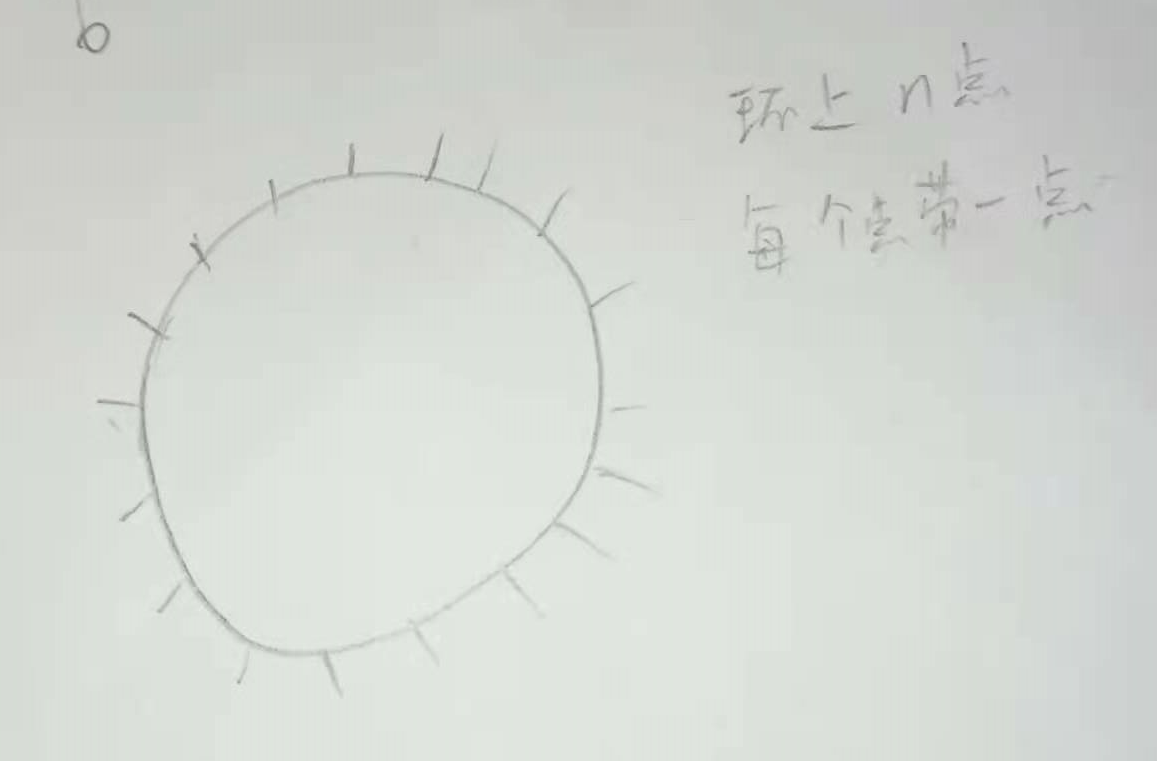 b
环上 n 点
每个点带一点